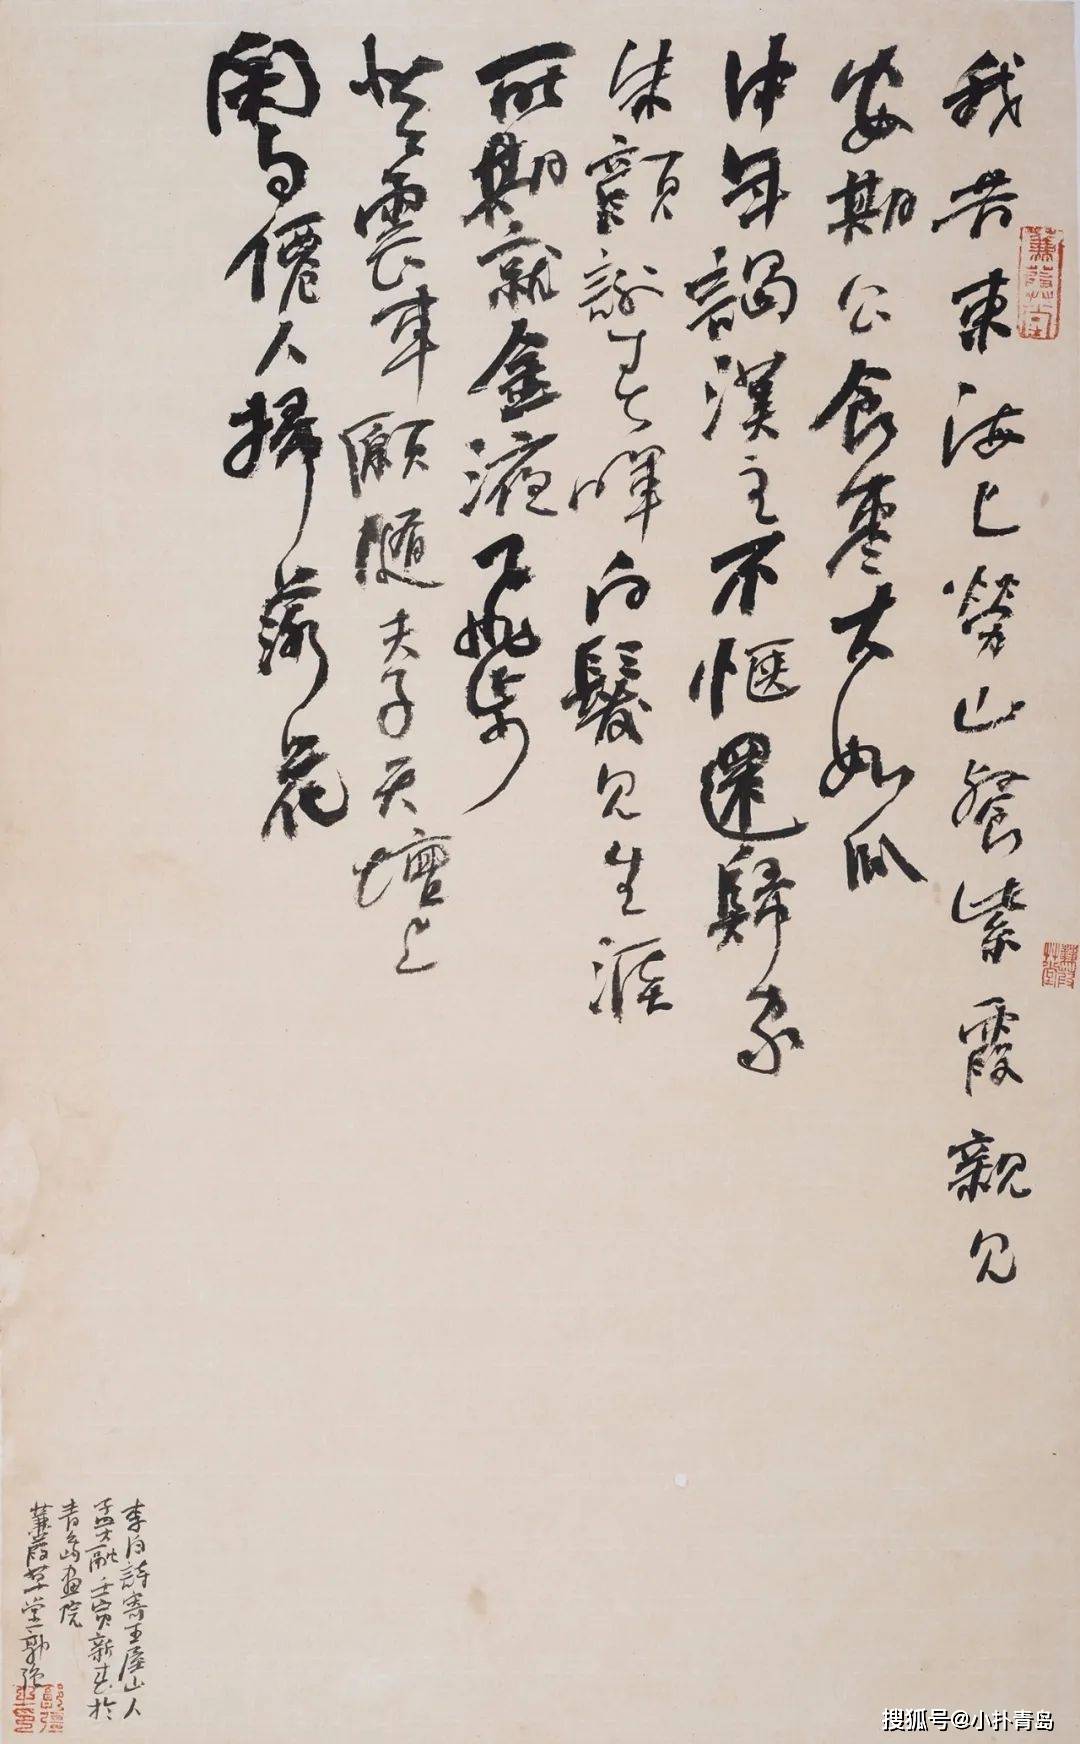 我昔東海上勞山餐紫霞親見
安期公食棗大如瓜
中年謁漢主不愜還歸家
朱顏謝春暉白髮見生涯
所期就金液飛步
登雲車願隨夫子天壇上
閑與僊人掃落花
李白詩寄王屋山人
孟大融壬寅新春於
青島畫院
蒹葭草堂郭強
搜狐号@小扑青岛